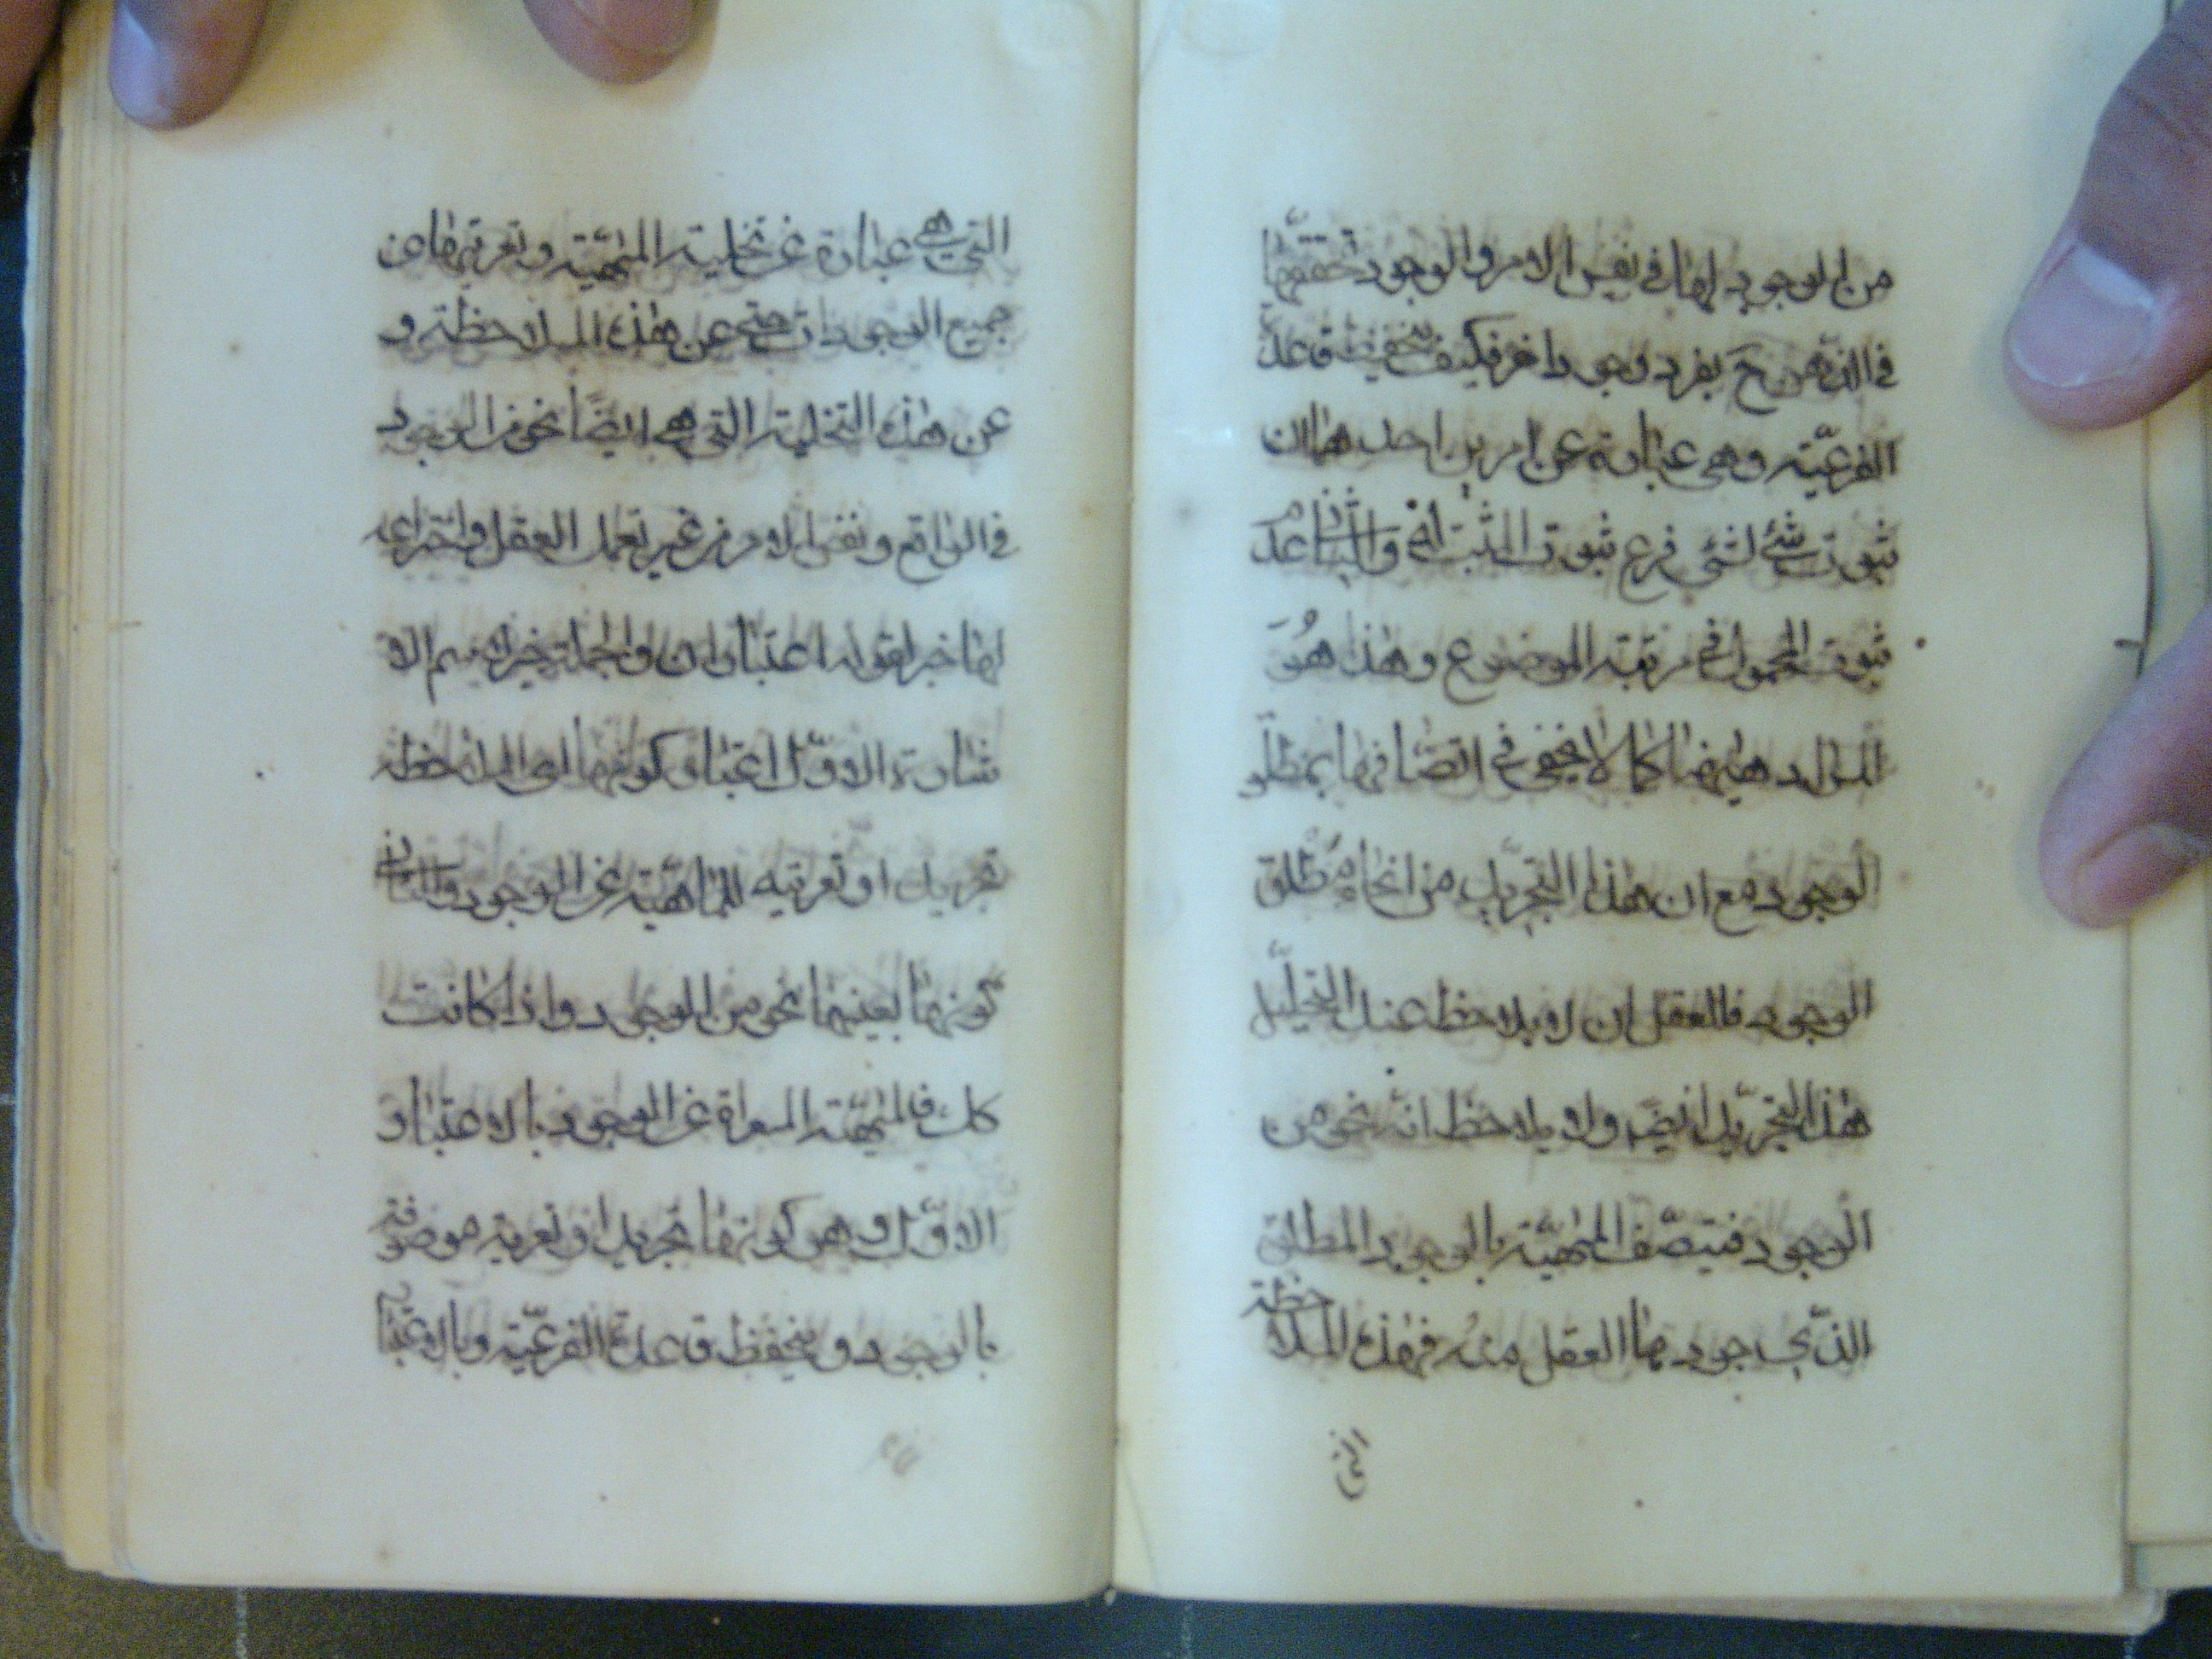 من الوجود لها في نفس الامر والوجود تحققها
في الذهن ح بفرد وجود اخر فكيف ينحفظ قاعدة
الفرعيّة وهي عبارة عن امرين احدهما ان
ثبوت شئ لشئ فرع ثبوت المثبت له والثاني عدم
ثبوت المحمول في مرتبة الموضوع وهذا هُوَ
المراد هيهنا كما لا يخفى في اتصافها بمطلق
الوجود مع ان هذا التجريد من انحاء مُطلق
الوجود فالعقل ان لا يلاحظ عند التحليل
هذا التجريد ايضًا ولا يلاحظ انّه نحو من
الوجود فيتصّف المهيّة بالوجود المطلق
الذي جردها العقل منه فهذه الملاحظة
التي
التي هي عبارة عن تخلية المهيّة وتعريتها عن
جميع الوجودات حتى عن هذه الملاحظة و
عن هذه التخلية التي هي ايضًا نحو من الوجود
في الواقع ونفس الامر من غير تعمل العقل واختراعه
لها خبر لقوله اعتباران والجملة خبر لاسم الا
شارة الاوّل اعتبار كونها اي الملاحظة
تجريدا وتعرية للماهيّة عن الوجود والثاني
كونها بعينها نحو من الوجود واذا كانت
كك فالمهيّة المعراة عن الوجود بالاعتبار
الاوّل وهو كونها تجريدا وتعرية موصوفة
بالوجود وينحفظ قاعدة الفرعيّة وبالاعتبار